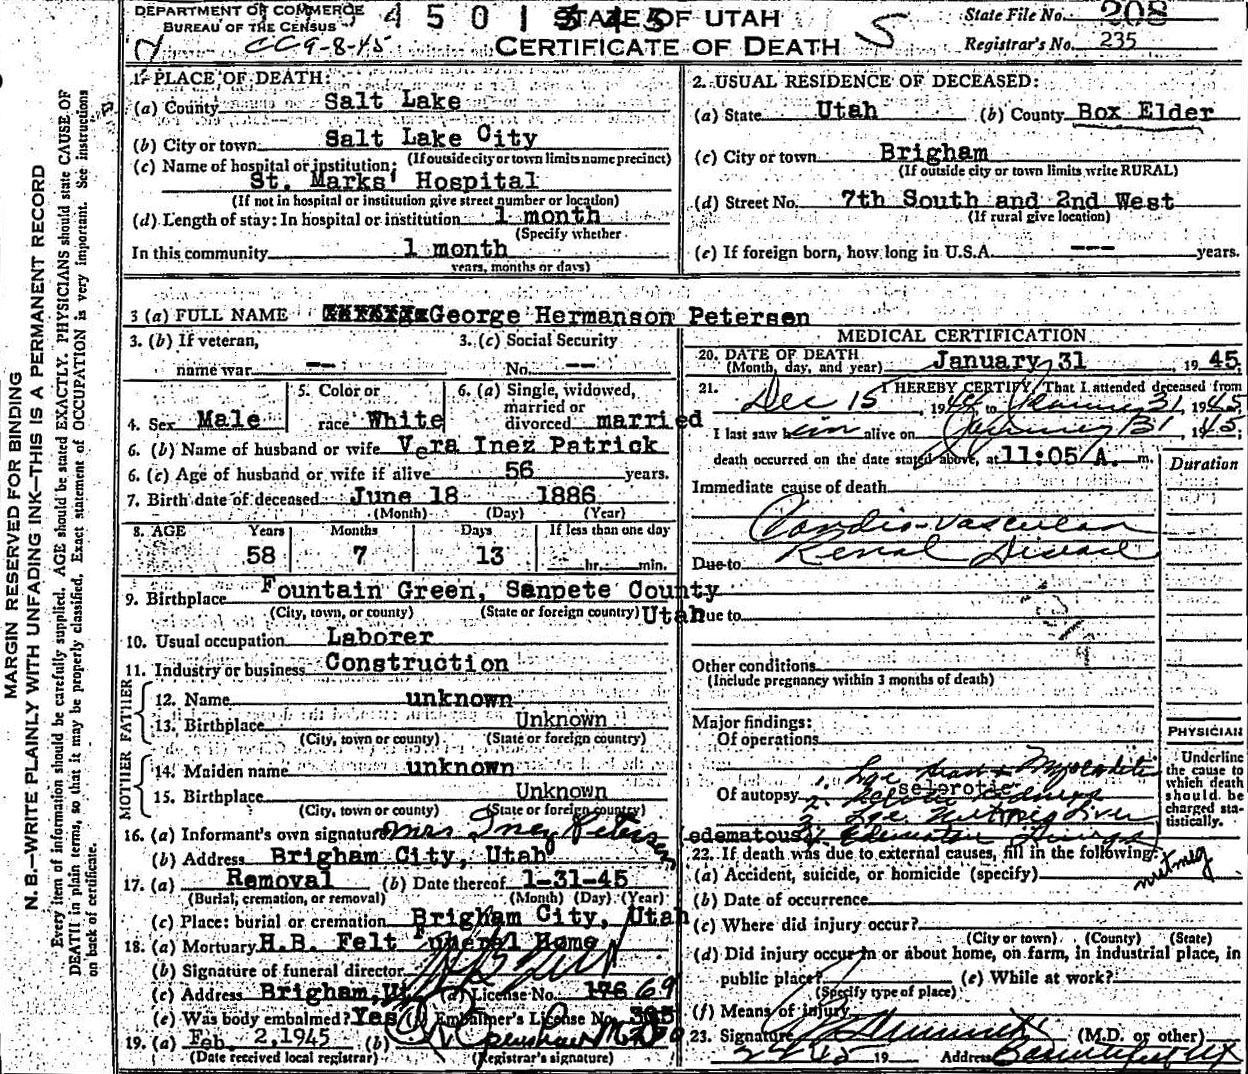 DEPARTMENT OF COMMERCE
BUREAU OF THE CENSUS
CC 9-8-45
STATE OF UTAH
CERTIFICATE OF DEATH
State File No. 208
Registrar's No. 235
MARGIN RESERVED FOR BINDING
N. B.—WRITE PLAINLY WITH UNFADING INK—THIS IS A PERMANENT RECORD
Every item of information should be carefully supplied. AGE should be stated EXACTLY. PHYSICIANS should state CAUSE OF
DEATH in plain terms, so that it may be properly classified. Exact statement of OCCUPATION is very important. See instructions
on back of certificate.
1. PLACE OF DEATH:
(a) County Salt Lake
(b) City or town Salt Lake City
(If outside city or town limits name precinct)
(c) Name of hospital or institution:
St. Marks' Hospital
(If not in hospital or institution give street number or location)
(d) Length of stay: In hospital or institution 1 month
(Specify whether
In this community 1 month
years, months or days)
2. USUAL RESIDENCE OF DECEASED:
(a) State Utah (b) County Box Elder
(c) City or town Brigham
(If outside city or town limits write RURAL)
(d) Street No. 7th South and 2nd West
(If rural give location)
(e) If foreign born, how long in U.S.A. --- years.
3 (a) FULL NAME George Hermanson Petersen
3. (b) If veteran, name war --
3. (c) Social Security No. --
4. Sex Male
5. Color or race White
6. (a) Single, widowed, married or divorced married
6. (b) Name of husband or wife Vera Inez Patrick
6. (c) Age of husband or wife if alive 56 years.
7. Birth date of deceased June 18 1886
(Month) (Day) (Year)
8. AGE Years Months Days If less than one day
58 7 13 hr. min.
9. Birthplace Fountain Green, Sanpete County
(City, town, or county) (State or foreign country) Utah
10. Usual occupation Laborer
11. Industry or business Construction
FATHER
12. Name unknown
13. Birthplace Unknown
(City, town or county) (State or foreign country)
MOTHER
14. Maiden name unknown
15. Birthplace Unknown
(City, town or county) (State or foreign country)
16. (a) Informant's own signature Mrs Inez Petersen
(b) Address Brigham City, Utah
17. (a) Removal (b) Date thereof 1-31-45
(Burial, cremation, or removal) (Month) (Day) (Year)
(c) Place: burial or cremation Brigham City, Utah
18. (a) Mortuary H.B. Felt Funeral Home
(b) Signature of funeral director
(c) Address Brigham, Ut (d) License No. 69
(e) Was body embalmed? Yes (f) Embalmer's License No.
19. (a) Feb. 2, 1945 (b)
(Date received local registrar) (Registrar's signature)
MEDICAL CERTIFICATION
20. DATE OF DEATH January 31 1945
(Month, day, and year)
21. I HEREBY CERTIFY, That I attended deceased from
Dec 15, 1944 to January 31, 1945
I last saw him alive on January 31, 1945;
death occurred on the date stated above, at 11:05 A. m.
Duration
Immediate cause of death
Cardio-vascular
Renal Disease
Due to
Due to
Other conditions
(Include pregnancy within 3 months of death)
Major findings:
Of operations
Of autopsy 1. Lge heart & Myocarditis
sclerotic
2. Sclerotic Kidneys
3. Lge. Nutmeg Liver
edematous 4. Edematous Lungs
nutmeg
PHYSICIAN
Underline
the cause to
which death
should be
charged sta-
tistically.
22. If death was due to external causes, fill in the following:
(a) Accident, suicide, or homicide (specify)
(b) Date of occurrence
(c) Where did injury occur?
(City or town) (County) (State)
(d) Did injury occur in or about home, on farm, in industrial place, in
public place? (e) While at work?
(Specify type of place)
(f) Means of injury
23. Signature (M.D. or other)
19 Address Bountiful Ut